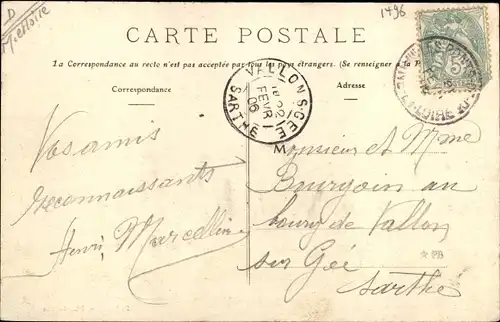 D
1496
CARTE POSTALE
La Correspondance au recto n'est pas acceptée par tous les pays étrangers. (Se renseigner à la P
Correspondance
Adresse
VALLON S. GÉE
22
FEVR
06
SARTHE
5
Vos amis
reconnaissants
Henri, Marcelline
Monsieur et Mme
Bourgoin au
bourg de Vallon
sur Gée
Sarthe